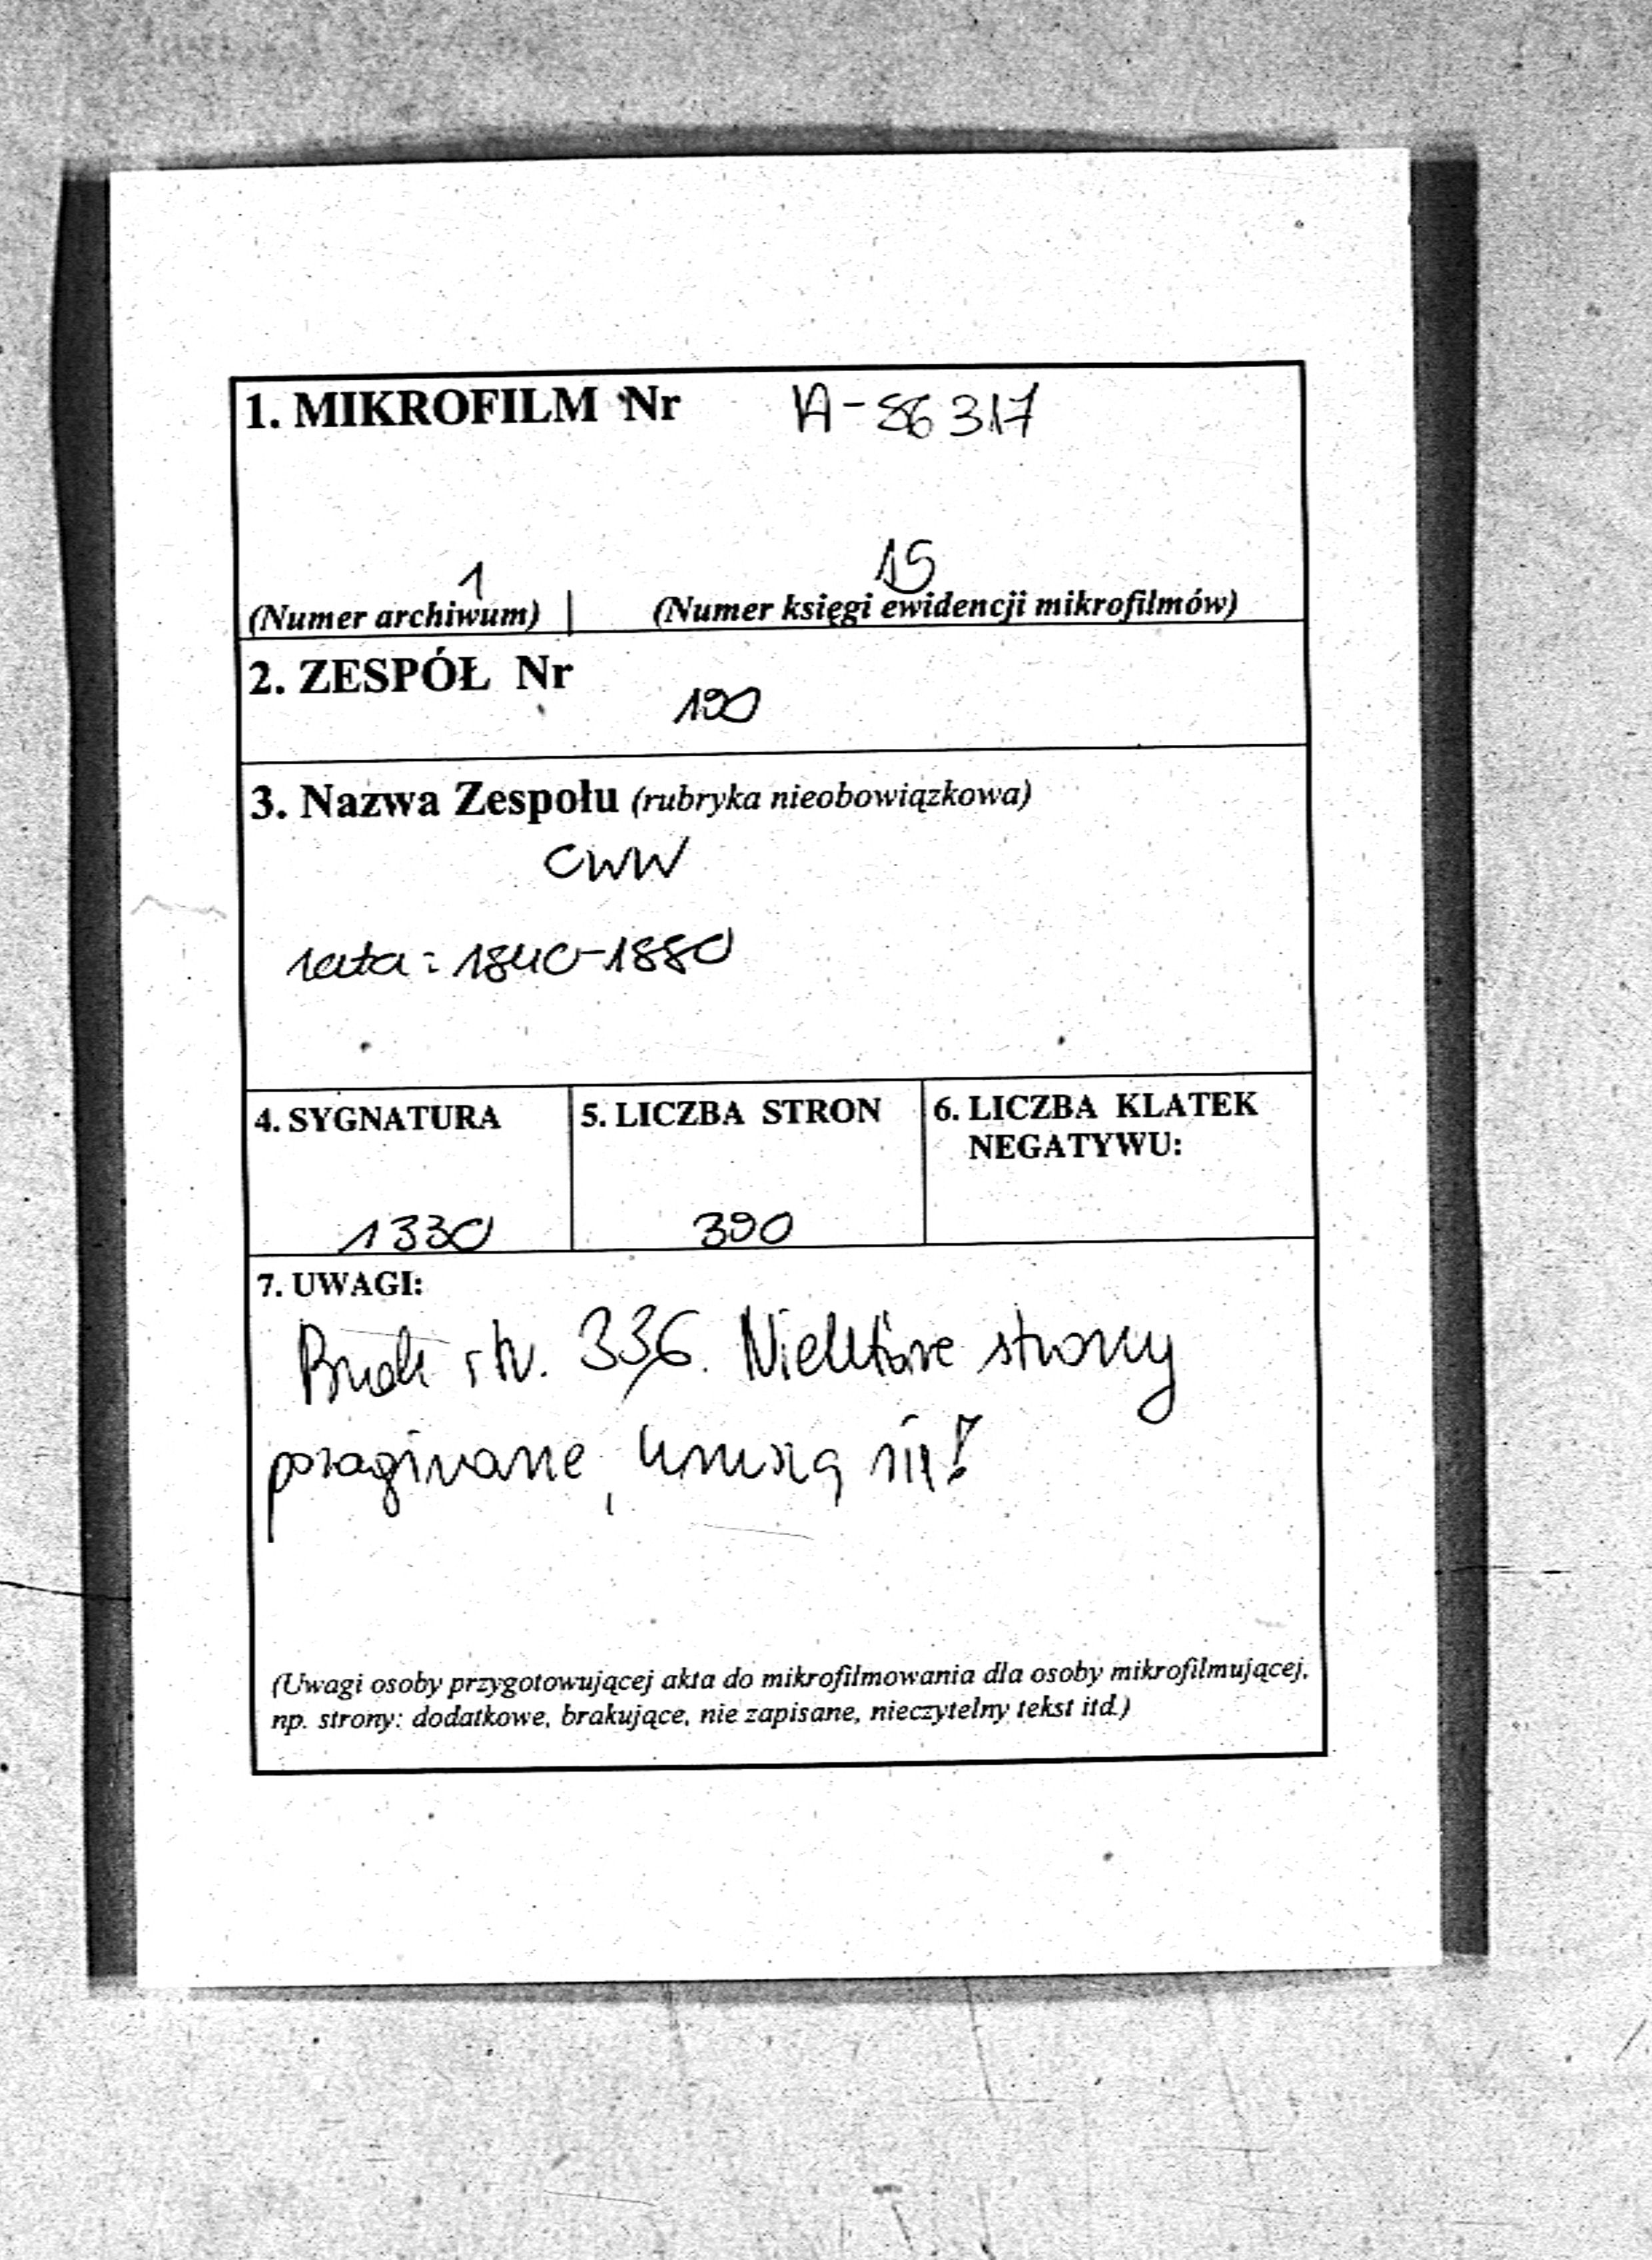 1. MIKROFILM Nr A-86317
1 15
(Numer archiwum) | (Numer księgi ewidencji mikrofilmów)
2. ZESPÓŁ Nr
190
3. Nazwa Zespołu (rubryka nieobowiązkowa)
CWW
lata: 1840-1880
4. SYGNATURA 5. LICZBA STRON 6. LICZBA KLATEK
NEGATYWU:
1330 390
7. UWAGI:
Brak str. 336. Niektóre strony
pozaginane, unoszą się!
(Uwagi osoby przygotowującej akta do mikrofilmowania dla osoby mikrofilmującej,
np. strony: dodatkowe, brakujące, nie zapisane, nieczytelny tekst itd.)